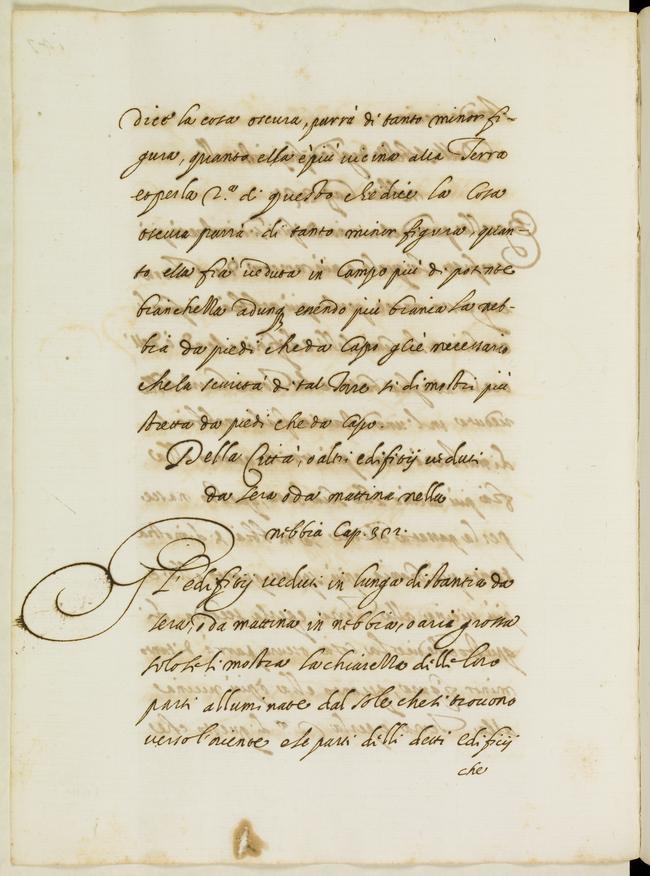 dice la cosa oscura, parrà di tanto minor fi-
gura, quanto ella è più vicina alla Terra
et per la 2.ª di questo che dice la Cosa
oscura parrà di tanto minor figura, quan-
to ella fia veduta in Campo più di potente
bianchezza adunq, essendo più bianca la neb-
bia da piedi che da Capo gl'è necessario
che la scurità di tal Torre si dimostri più
stretta da piedi che da Capo.
Della Città, o altri edifitij veduti
da sera o da mattina nella
nebbia Cap.
Gl'edifitij veduti in lunga distantia da
sera, o da mattina in nebbia, o aria grossa
solo si dimostra la chiarezza delle loro
parti alluminate dal sole che si trovono
verso l'oriente e le parti delli detti edifitij
che